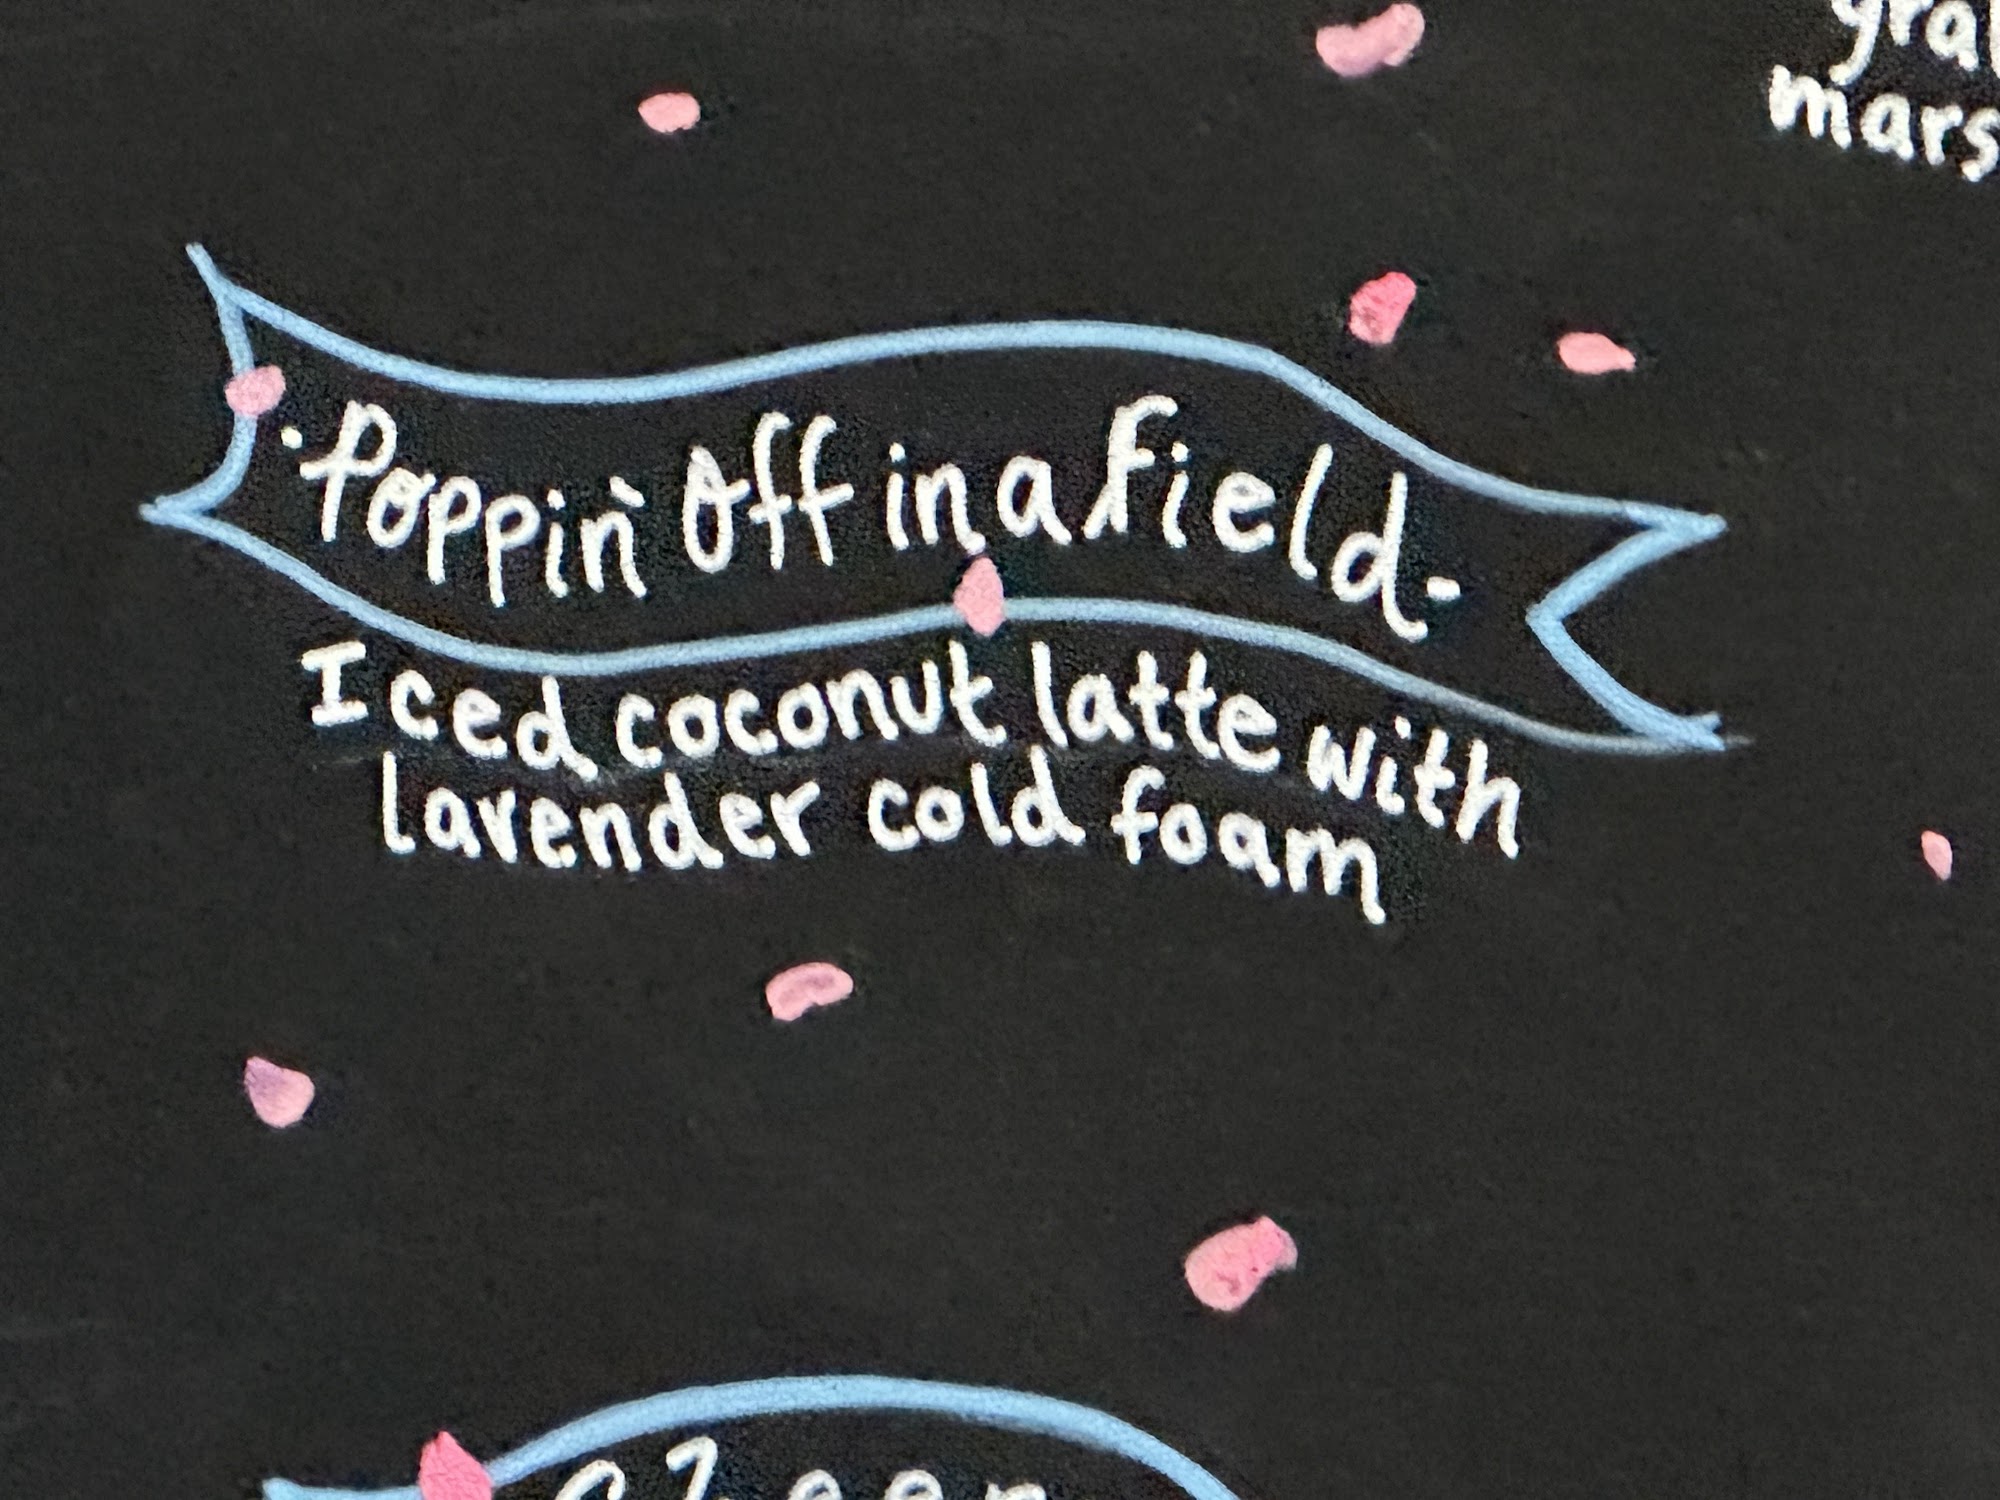 ·Poppin' Off in a field-
Iced coconut latte with
lavender cold foam